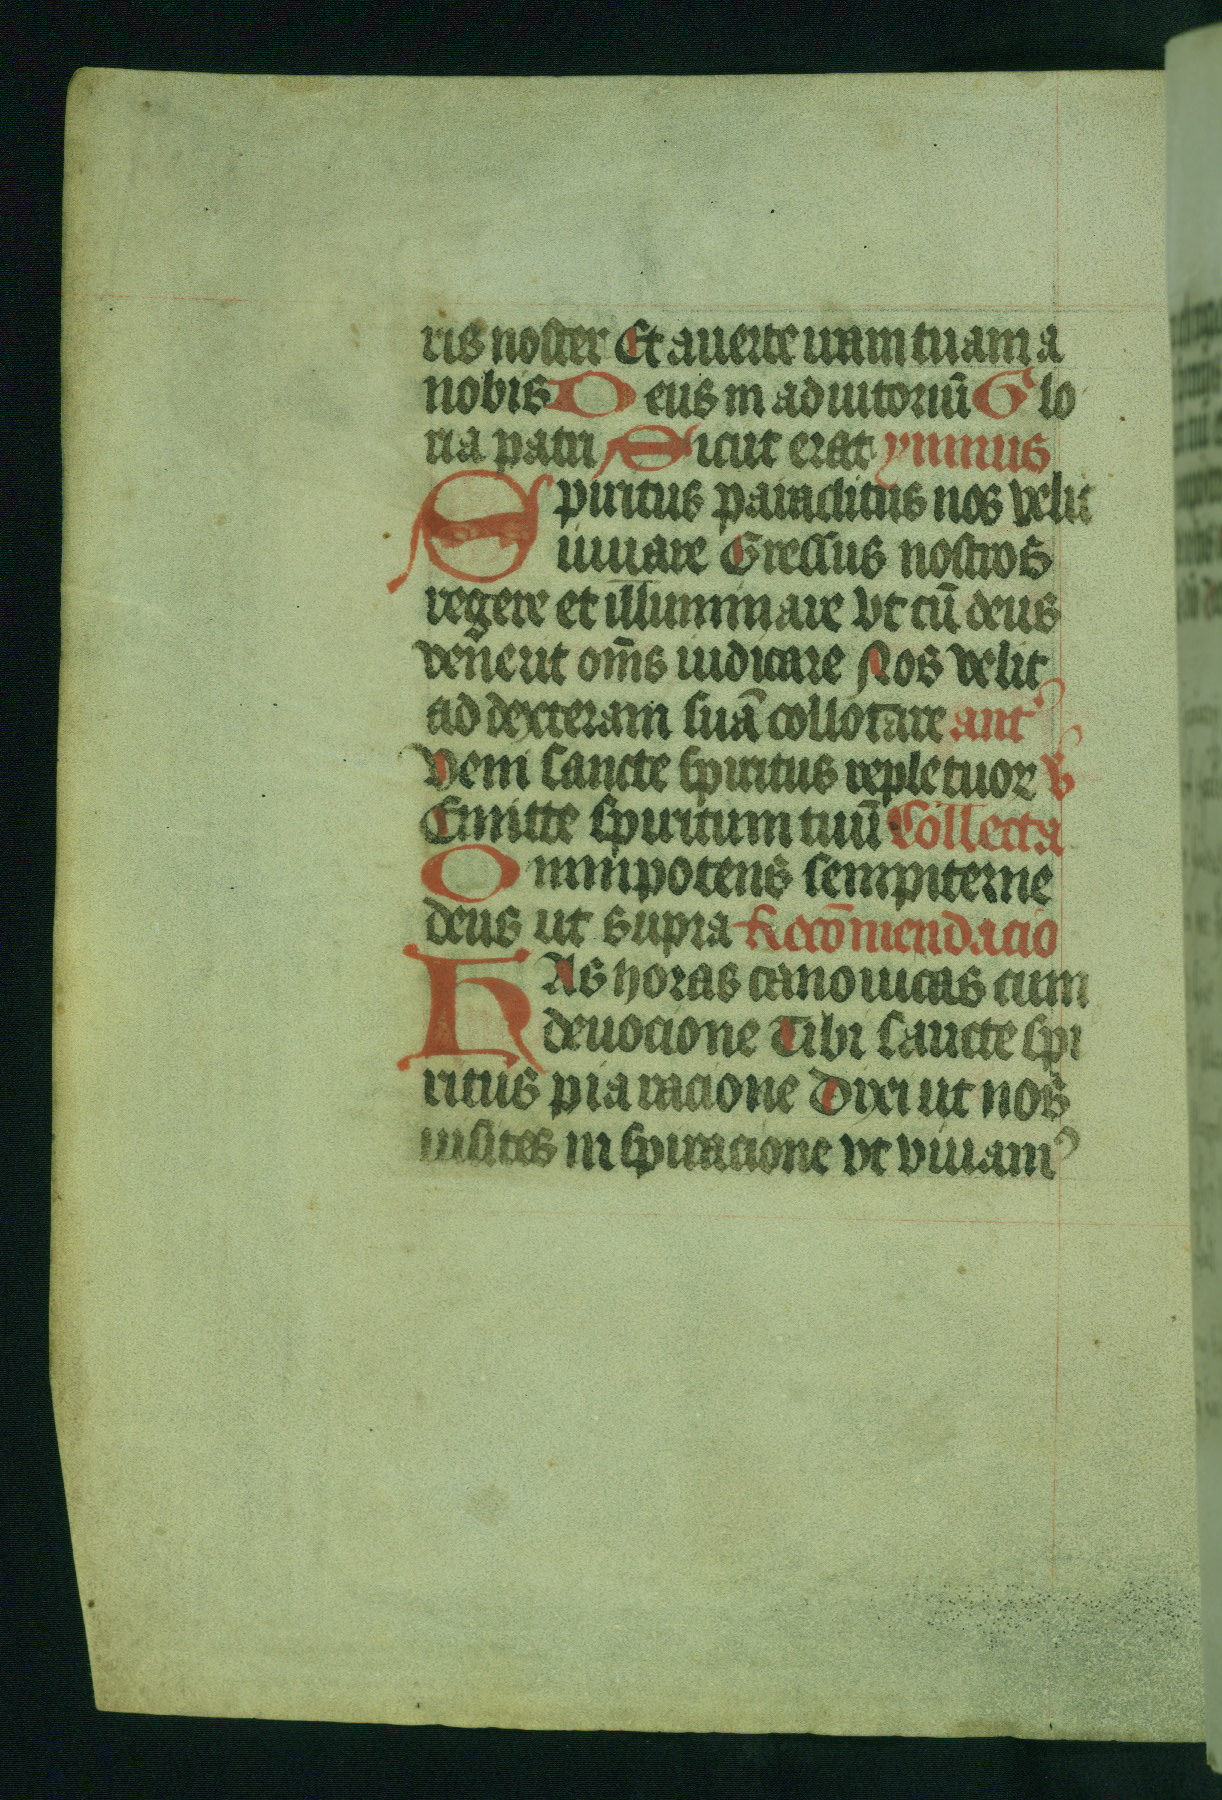 ris noster Et auerte iram tuam a
nobis Deus in adiutoriũ Glo
ria patri Sicut erat ymnus
Spiritus paraclitus nos velit
iuuare Gressus nostros
regere et illuminare Vt cũ deus
venerit om̃s iudicare Nos velit
ad dexteram suã collocare ant'
Veni sancte spiritus repletuor V
Emitte spiritum tuũ Collecta
Omnipotens sempiterne
deus ut supra Recõmendacio
HAs horas canonicas cum
deuocione Tibi sancte spi
ritus pia racione Dixi ut nos
uisites inspiracione vt viuamꝰ